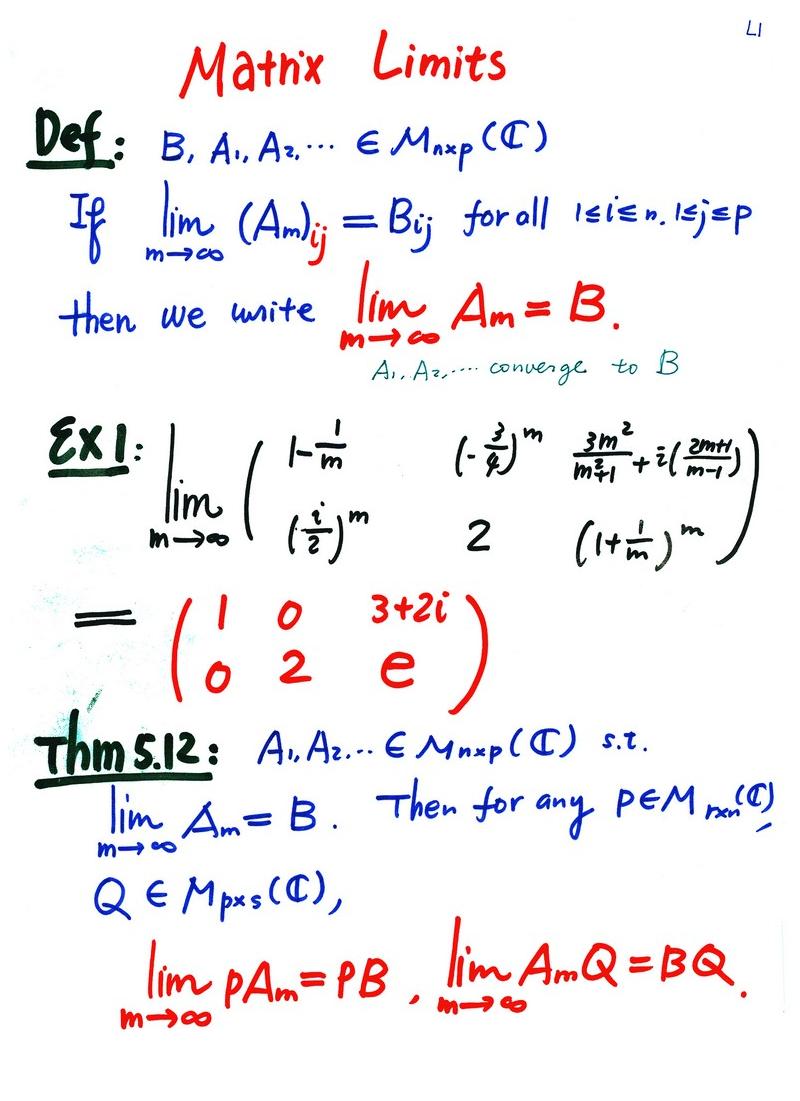 L1
Matrix Limits
Def: B, A₁, A₂, ⋯ ∈ Mₙₓₚ(ℂ)
If lim_{m→∞} (Aₘ)ᵢⱼ = Bᵢⱼ for all 1≤i≤n, 1≤j≤p
then we write lim_{m→∞} Aₘ = B.
A₁, A₂, ⋯ converge to B
Ex 1: lim_{m→∞} ( 1-1/m (-3/4)^m 3m²/(m²+1) + i((2m+1)/(m-1))
(i/2)^m 2 (1+1/m)^m )
= ( 1 0 3+2i
0 2 e )
Thm 5.12: A₁, A₂, ⋯ ∈ Mₙₓₚ(ℂ) s.t.
lim_{m→∞} Aₘ = B. Then for any P∈M_{r×n}(ℂ),
Q ∈ M_{p×s}(ℂ),
lim_{m→∞} PAₘ = PB, lim_{m→∞} AₘQ = BQ.